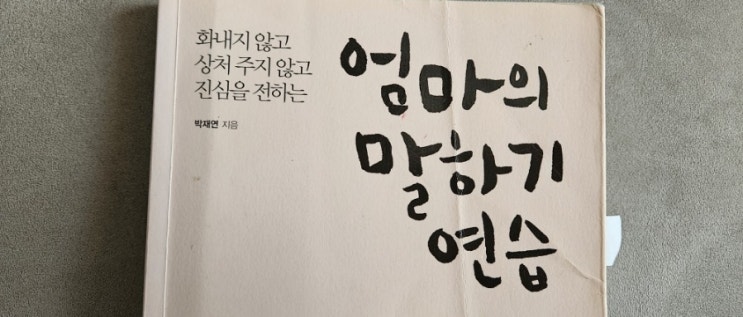 화내지 않고
상처 주지 않고
진심을 전하는
박재연 지음
엄마의
말하기
연습